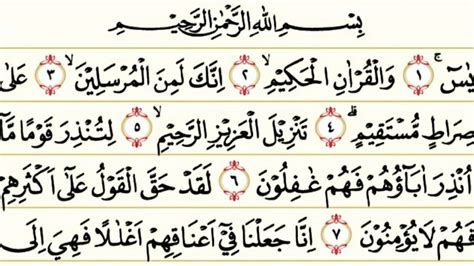 بِسْمِ اللهِ الرَّحْمٰنِ الرَّحِيْمِ
يٰسۤ ۚ ١ وَالْقُرْاٰنِ الْحَكِيْمِۙ ٢ اِنَّكَ لَمِنَ الْمُرْسَلِيْنَۙ ٣ عَلٰى
صِرَاطٍ مُّسْتَقِيْمٍۗ ٤ تَنْزِيْلَ الْعَزِيْزِ الرَّحِيْمِۙ ٥ لِتُنْذِرَ قَوْمًا مَّآ
اُنْذِرَ اٰبَاۤؤُهُمْ فَهُمْ غٰفِلُوْنَ ٦ لَقَدْ حَقَّ الْقَوْلُ عَلٰٓى اَكْثَرِهِمْ
فَهُمْ لَا يُؤْمِنُوْنَ ٧ اِنَّا جَعَلْنَا فِيْٓ اَعْنَاقِهِمْ اَغْلٰلًا فَهِيَ اِلَى